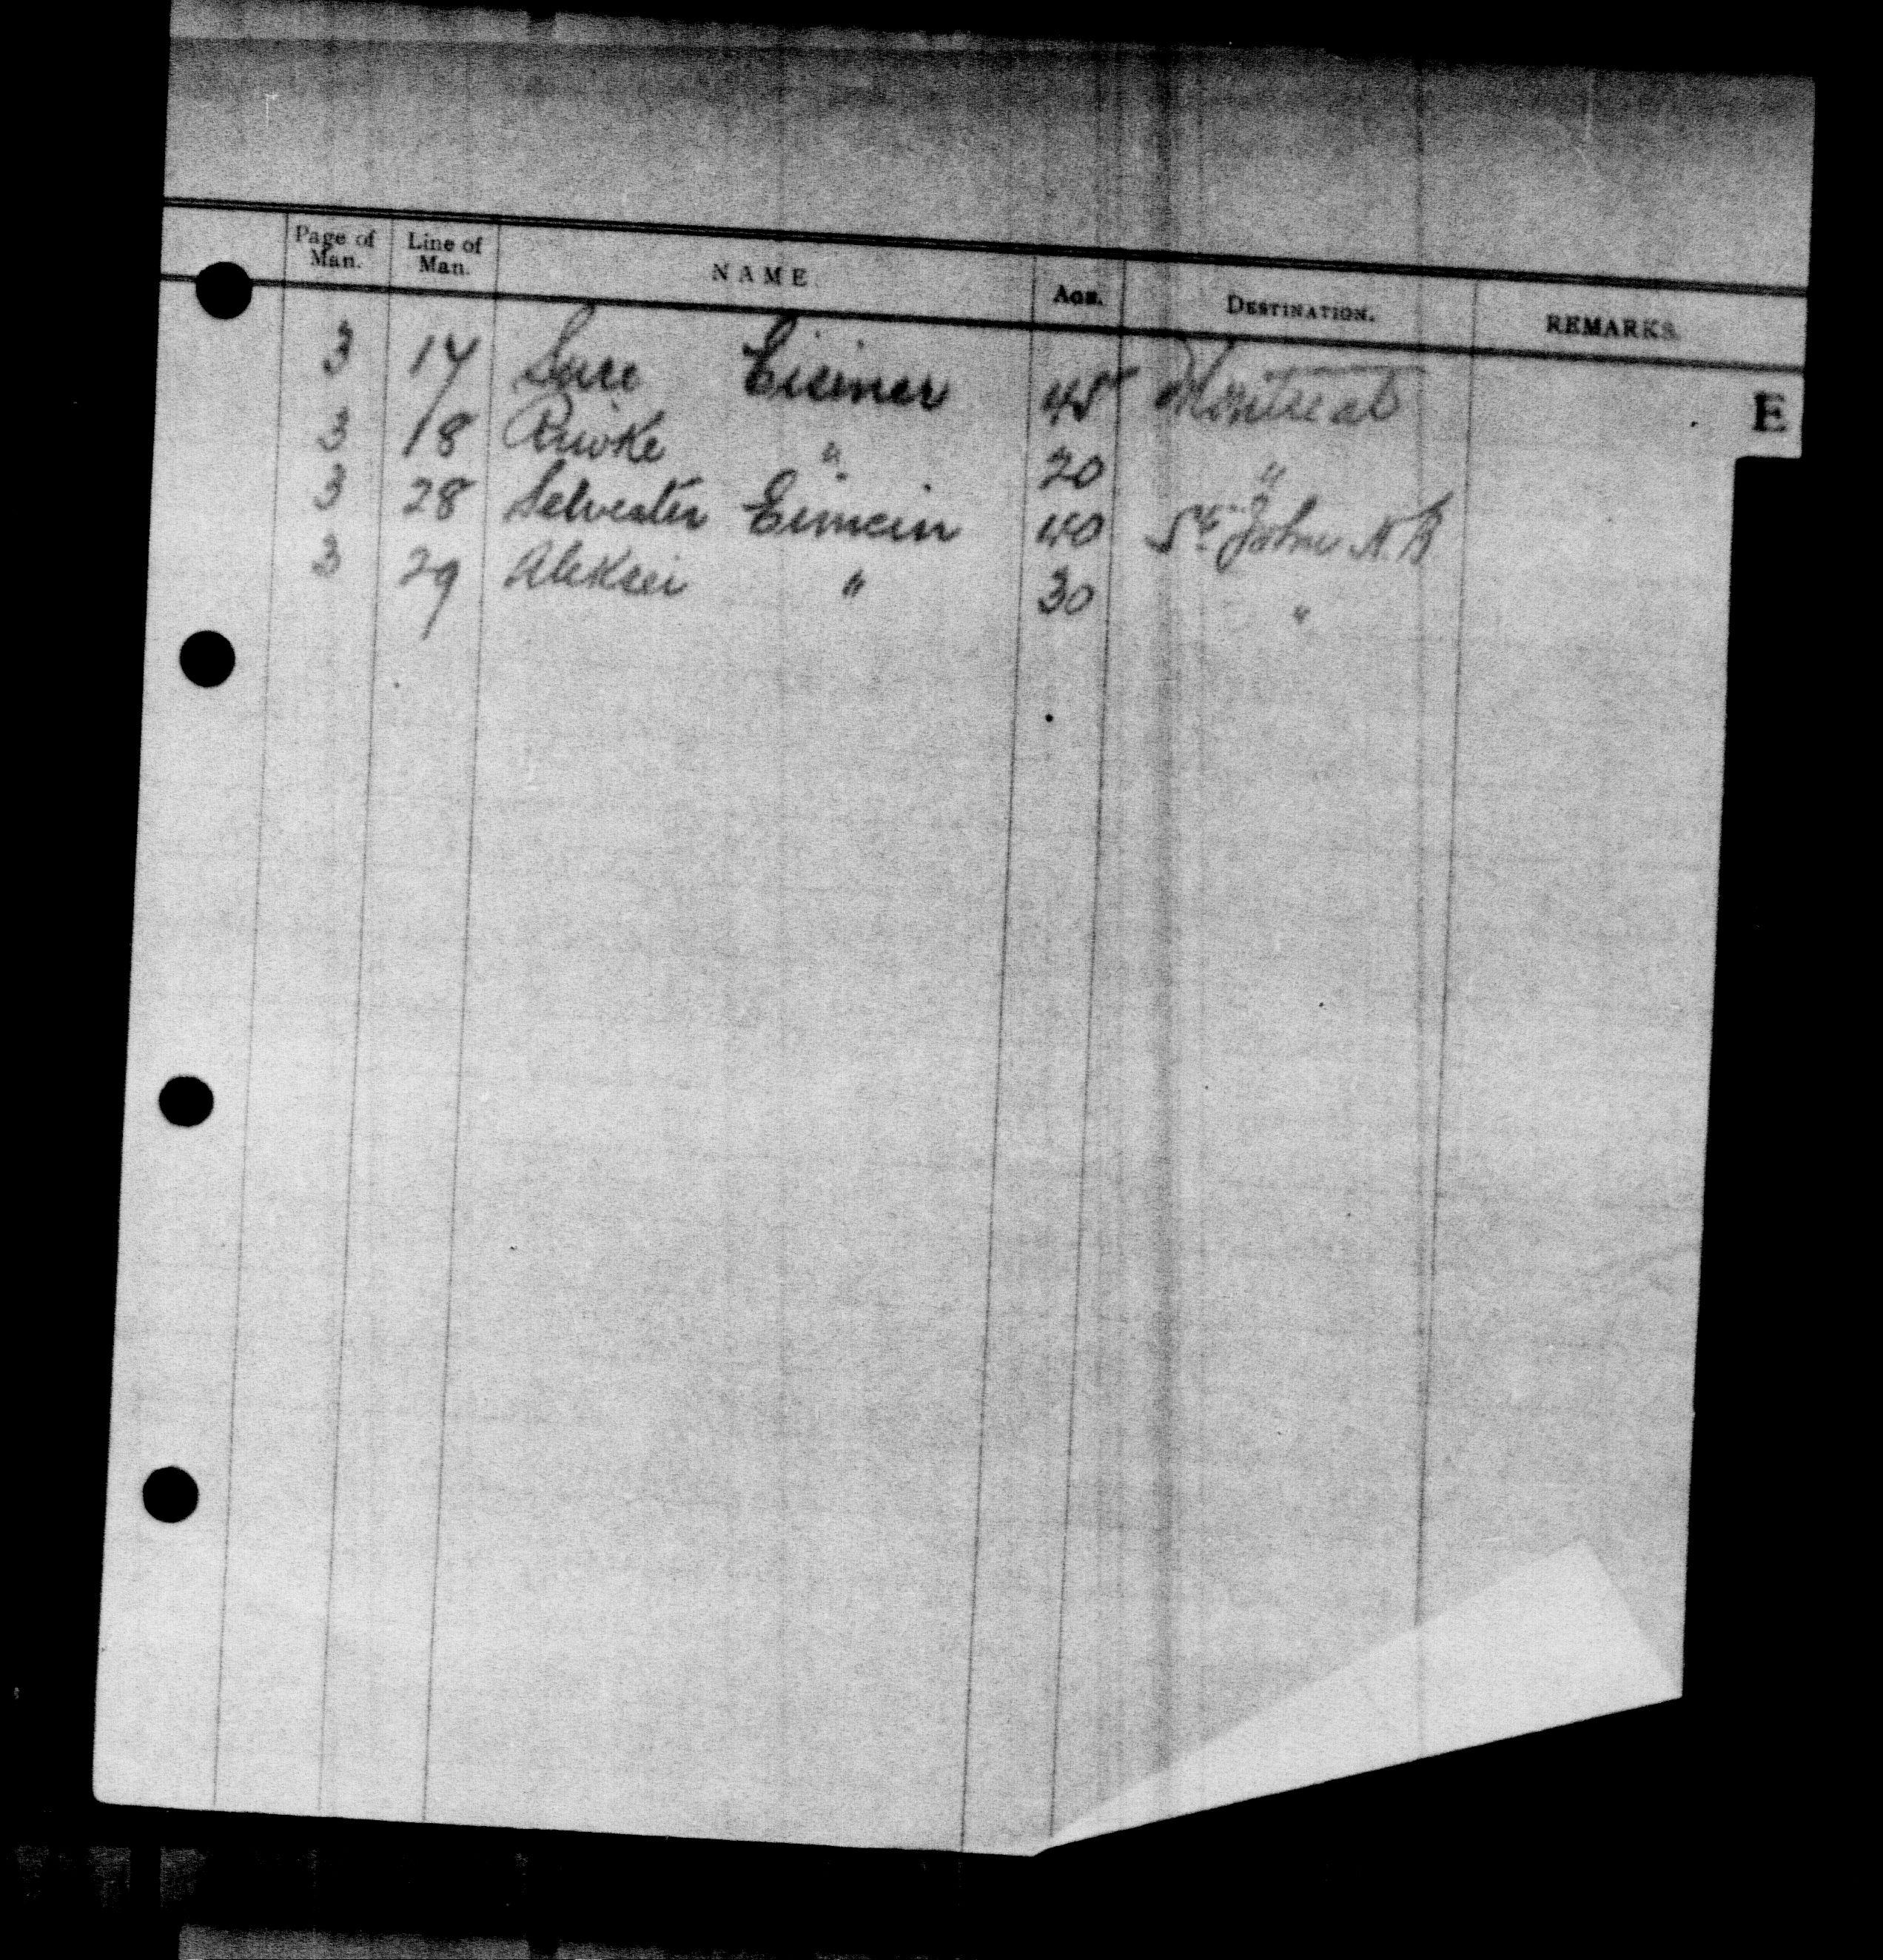 Page of Man. Line of Man. NAME. AGE. DESTINATION. REMARKS.
3 17 Sure Eisiner 45 Montreal
E
3 18 Riwke " 20 "
3 28 Selvester Eimein 40 St. John N.B
3 29 Aleksei " 30 "